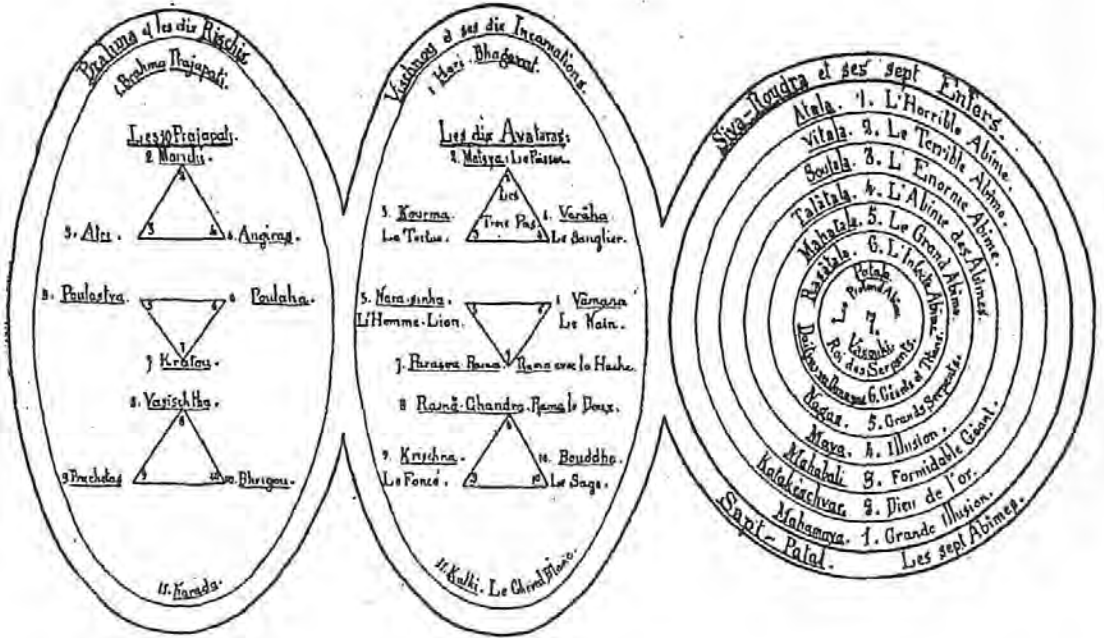 Brahma et les dix Rischis
1. Brahma Prajapati.
Les 10 Prajapati.
2. Maridis.
2
3. Atri.
3
4
4. Angiras.
Poulastya.
5
6
Poulaha.
7
7 Kratou.
8. Vasischtha.
8
9 Prachetas
9
10
10. Bhrigou.
11. Narada.
Vischnou & ses dix Incarnations.
1 Hari. Bhagavat.
Les dix Avataras.
2. Matsya. Le Poisson.
2
Les
Trois Pas.
3. Kourma.
La Tortue.
3
4
Varâha
Le Sanglier.
5. Nara-sinha.
L'Homme-Lion.
5
6
Vâmana
Le Nain.
7. Parasou Rama.
7
Rama avec la Hache.
8 Ramâ-Chandra. Rama le Doux.
8
9. Krischna.
Le Foncé.
9
10
10. Bouddha.
Le Sage.
11. Kalki. Le Cheval Blanc.
Siva-Roudra et ses sept Enfers.
Atala. 1. L'Horrible Abime.
Vitala. 2. Le Terrible Abime.
Soutala. 3. L'Enorme Abime.
Talâtala. 4. L'Abime des Abimes.
Mahatala. 5. Le Grand Abime.
Rasâtala. 6. L'Infecte Abime.
Patala
Le Profond Abime
7.
Vasouki
Roi des Serpents.
6. Géants et Titans.
Nagas. 5. Grands Serpents.
Maya. 4. Illusion.
Mahabali 3. Formidable Géant.
Katakeschvar. 2. Dieu de l'or.
Mahamaya. 1. Grande Illusion.
Sapt-Patal. Les sept Abimes.